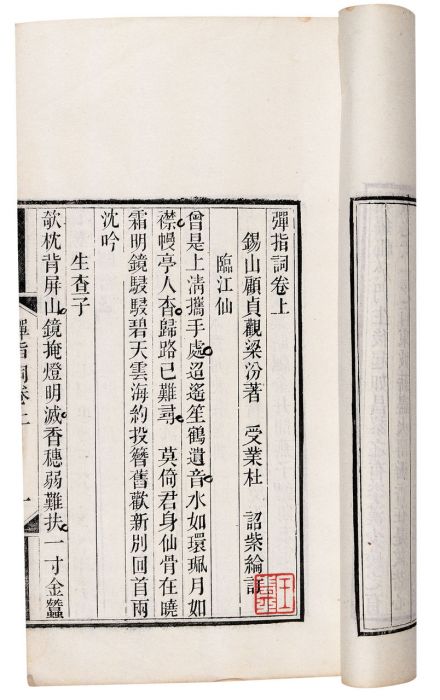 彈指詞卷上
錫山顧貞觀梁汾著 受業杜 詔紫綸訂
臨江仙
曾是上清攜手處迢遙笙鶴遺音水如環珮月如
襟幔亭人杳歸路已難尋 莫倚君身仙骨在曉
霜明鏡駸駸碧天雲海約投簪舊歡新別回首兩
沈吟
生查子
欹枕背屏山鏡掩燈明滅香穗弱難扶一寸金蠶
彈指詞卷上 一